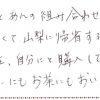 とあんの組み合わせ
くて山梨に帰省する
、自分にと購入して
にもお茶にもおい